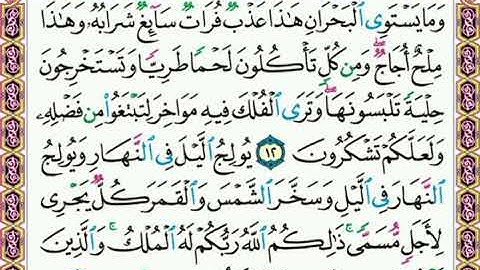 وَمَا يَسْتَوِي ٱلْبَحْرَانِ هَٰذَا عَذْبٌ فُرَاتٌ سَآئِغٌ شَرَابُهُۥ وَهَٰذَا
مِلْحٌ أُجَاجٌ ۖ وَمِن كُلٍّ تَأْكُلُونَ لَحْمًا طَرِيًّا وَتَسْتَخْرِجُونَ
حِلْيَةً تَلْبَسُونَهَا ۖ وَتَرَى ٱلْفُلْكَ فِيهِ مَوَاخِرَ لِتَبْتَغُوا۟ مِن فَضْلِهِۦ
وَلَعَلَّكُمْ تَشْكُرُونَ ١٢ يُولِجُ ٱلَّيْلَ فِى ٱلنَّهَارِ وَيُولِجُ
ٱلنَّهَارَ فِى ٱلَّيْلِ وَسَخَّرَ ٱلشَّمْسَ وَٱلْقَمَرَ كُلٌّ يَجْرِى
لِأَجَلٍ مُّسَمًّى ۚ ذَٰلِكُمُ ٱللَّهُ رَبُّكُمْ لَهُ ٱلْمُلْكُ ۚ وَٱلَّذِينَ